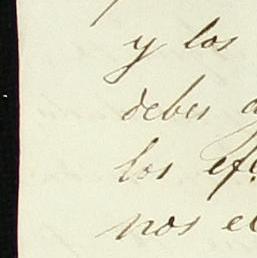 y los
deber
los
nos